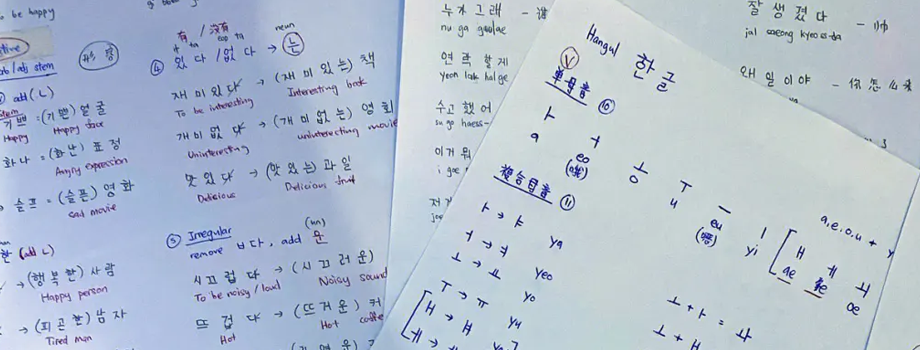 to be happy
adj stem
add (L)
(기쁜) 얼굴
Happy
Happy face
화나 = (화난) 표정
Angry expression
슬프 = (슬픈) 영화
sad movie
한 (add L)
→ (행복한) 사람
Happy person
→ (피곤한) 남자
Tired man
有 / 没有
it ta eop ta
neun
④ 있다 / 없다 → 는
재미있다 → (재미있는) 책
To be interesting Interesting book
개미없다 → (개미없는) 영회
Uninteresting uninteresting movie
맛있다 → (맛있는) 과일
Delicious Delicious fruit
(un)
⑤ Irregular
remove ㅂ다, add 운
시끄럽다 → (시끄러운)
To be noisy / loud Noisy sound
뜨겁다 → (뜨거운) 커
Hot Hot coffe
누가 그래 - 谁
nu ga geulae
연락할게
yeon lak hal ge
수고했어
su go haess-
이거 뭐
i geo
잘 생겼다 - 帅
jal saeng kyeoss-da
왜 일이야 - 你怎么
Hangul 한글
V
单母音 ⑩
ㅏ ㅓ ㅗ ㅜ ㅡ ㅣ
a eo o u eu yi
复合母音 ⑪
a, e, o, u + y
ㅐ ㅔ ㅚ
ae oe
ㅏ → ㅑ ya
ㅓ → ㅕ yeo
ㅗ → ㅛ yo
ㅜ → ㅠ yu
ㅐ → ㅒ
ㅔ →
ㅗ + ㅏ = ㅘ
ㅗ + ㅐ